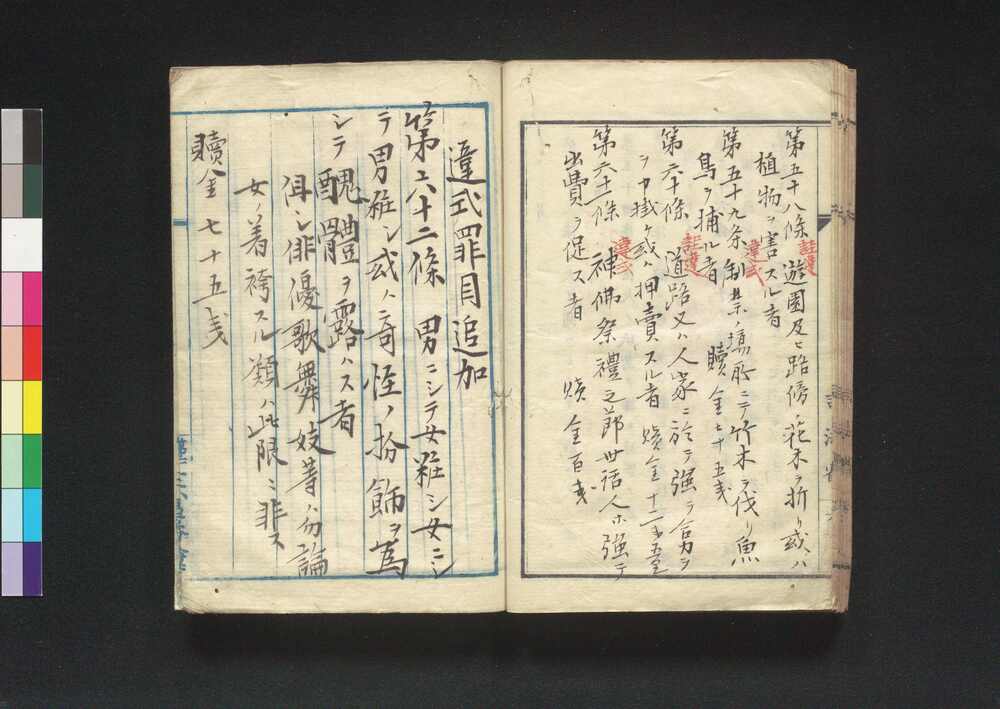 第五十八條 遊園及ヒ路傍ノ花木ヲ折リ或ハ
註違
植物ヲ害スル者
第五十九条 制禁ノ場所ニテ竹木ヲ伐リ魚
違式
鳥ヲ捕ル者 贖金七十五戋
第六十條 道路又ハ人家ニ於テ強テ合力ヲ
註違
ヲ申掛ケ或ハ押賣スル者 贖金十二戋五厘
第六十一條 神佛祭禮之節世話人ホ強テ
違式
出費ヲ促ス者 贖金百戋
違式罪目追加
第六十二條 男ニシテ女粧シ女ニシ
テ男粧シ或ハ奇怪ノ扮飾ヲ為
シテ醜體ヲ露ハス者
但シ俳優歌舞妓等ハ勿論
女ノ着袴スル類ハ此限ニ非ス
贖金七十五戋